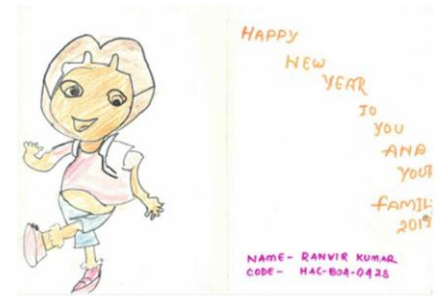 HAPPY
NEW
YEAR
TO
YOU
AND
YOUR
FAMIL
2019
NAME- RANVIR KUMAR
CODE- HAC-BOA-0428